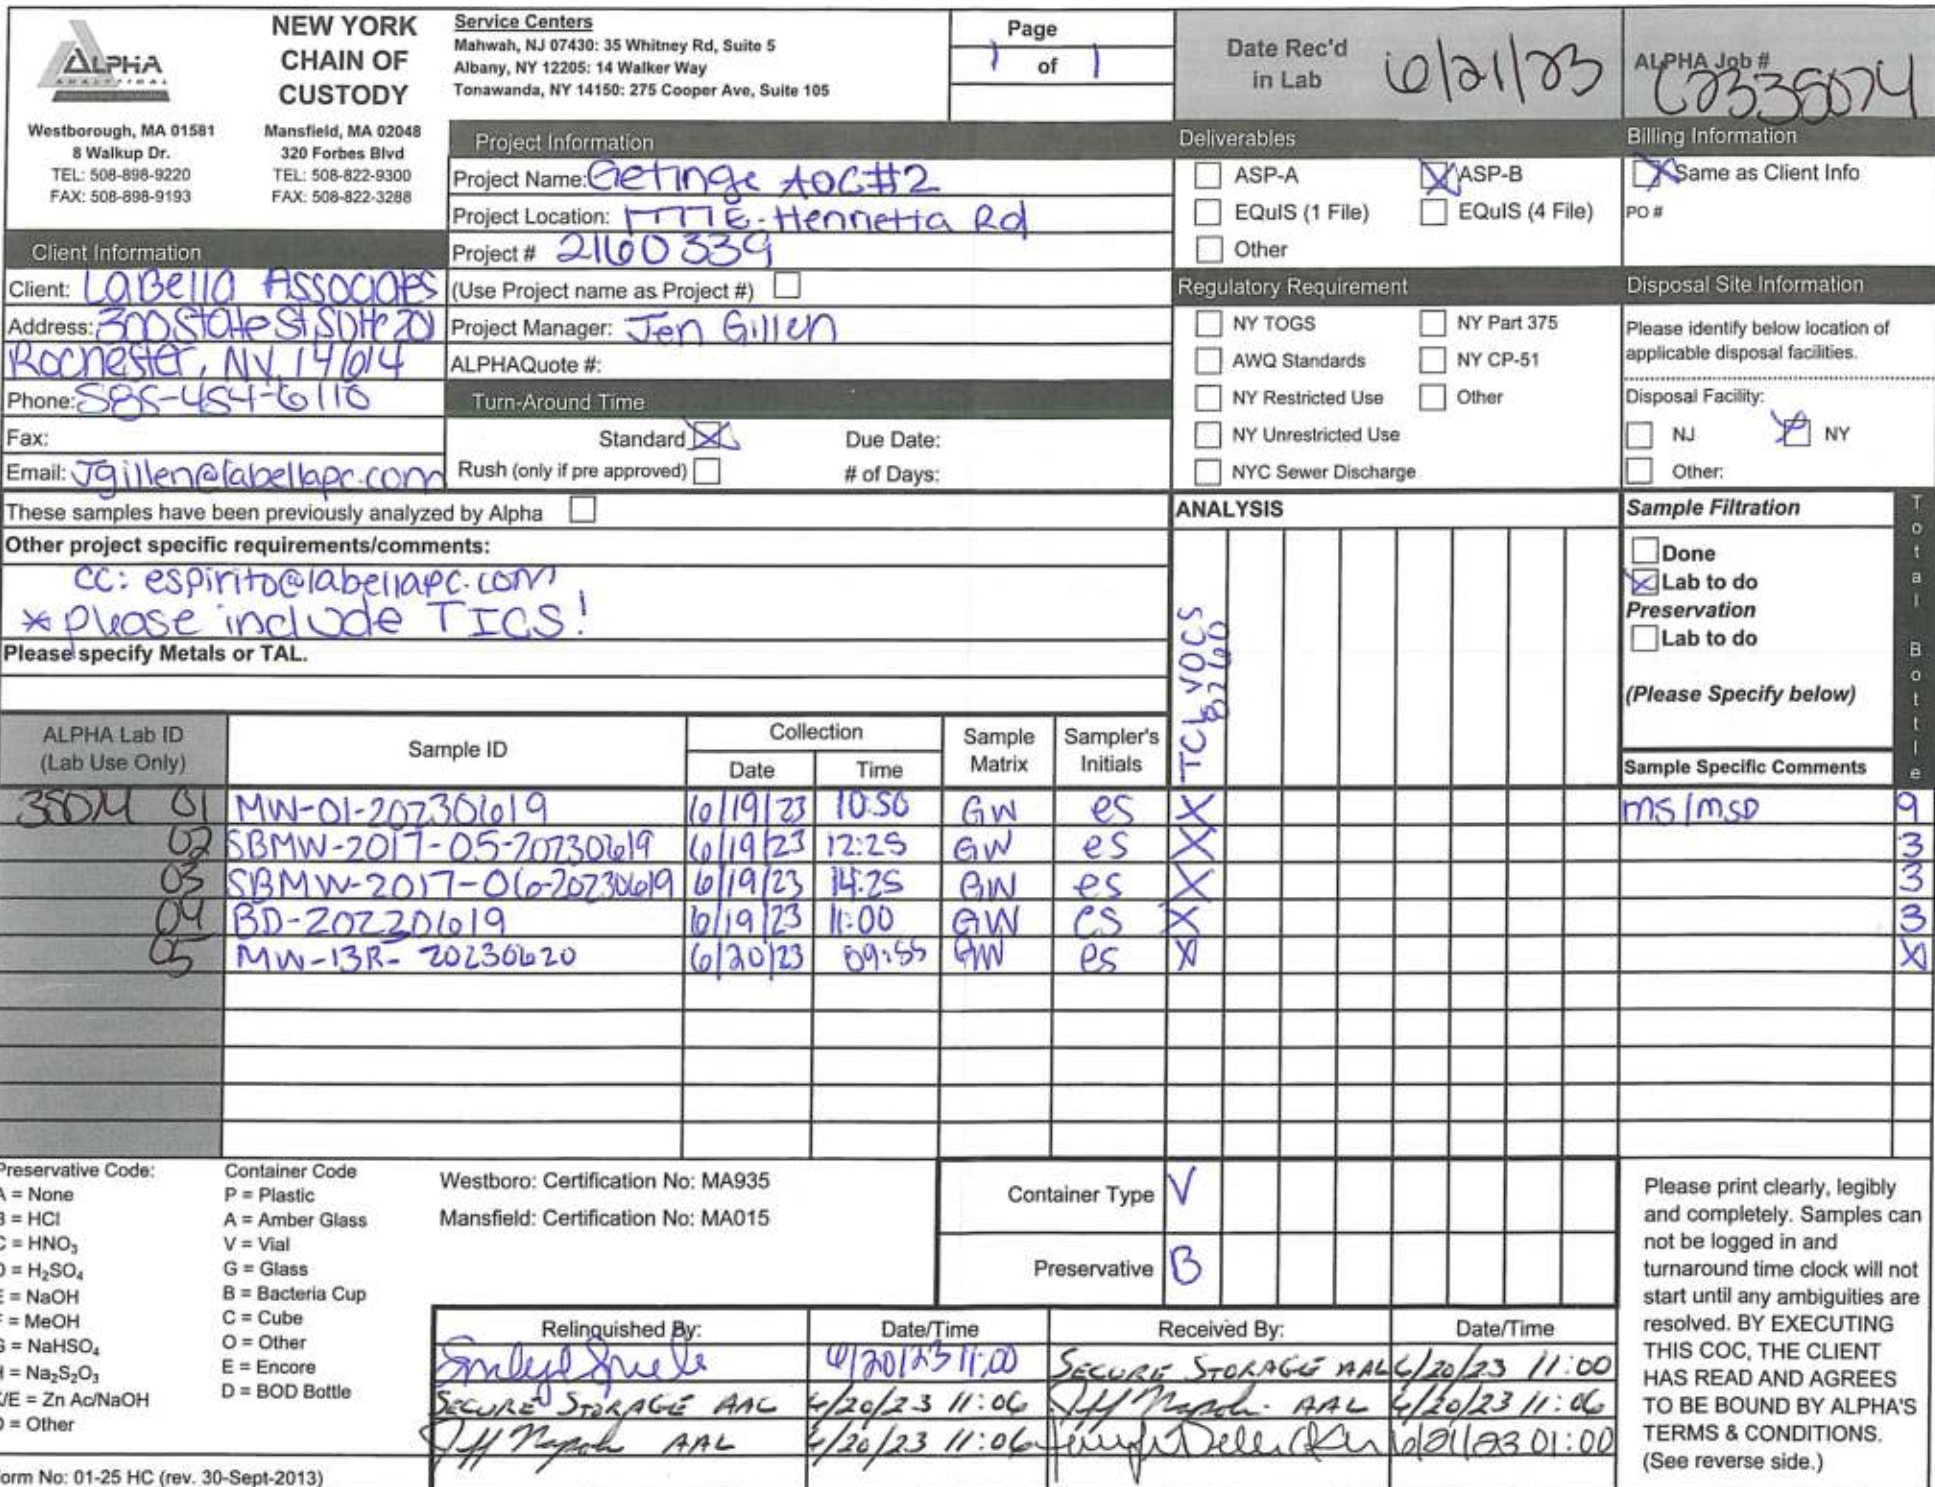 ALPHA
ANALYTICAL
NEW YORK
CHAIN OF
CUSTODY
Westborough, MA 01581
8 Walkup Dr.
TEL: 508-898-9220
FAX: 508-898-9193
Mansfield, MA 02048
320 Forbes Blvd
TEL: 508-822-9300
FAX: 508-822-3288
Service Centers
Mahwah, NJ 07430: 35 Whitney Rd, Suite 5
Albany, NY 12205: 14 Walker Way
Tonawanda, NY 14150: 275 Cooper Ave, Suite 105
Page
1 of 1
Date Rec'd
in Lab
6/21/23
ALPHA Job #
Client Information
Client: LaBella Associates
Address: 300 State St Suite 201
Rochester, NY, 14614
Phone: 585-454-6110
Fax:
Email: Jgillen@labellapc.com
Project Information
Project Name: Getinge AOC#2
Project Location: 1777 E. Henrietta Rd
Project # 2160339
(Use Project name as Project #)
Project Manager: Jen Gillen
ALPHAQuote #:
Turn-Around Time
Standard X Due Date:
Rush (only if pre approved) # of Days:
Deliverables
ASP-A X ASP-B
EQuIS (1 File) EQuIS (4 File)
Other
Regulatory Requirement
NY TOGS NY Part 375
AWQ Standards NY CP-51
NY Restricted Use Other
NY Unrestricted Use
NYC Sewer Discharge
Billing Information
X Same as Client Info
PO #
Disposal Site Information
Please identify below location of
applicable disposal facilities.
Disposal Facility:
NJ X NY
Other:
These samples have been previously analyzed by Alpha
Other project specific requirements/comments:
cc: espirito@labellapc.com
* please include TICS!
Please specify Metals or TAL.
ANALYSIS
TCL VOCS
8260
Sample Filtration
Done
X Lab to do
Preservation
Lab to do
(Please Specify below)
Total Bottle
ALPHA Lab ID
(Lab Use Only)
Sample ID
Collection
Date Time
Sample
Matrix
Sampler's
Initials
Sample Specific Comments
01 MW-01-20230619 6/19/23 10:50 GW es X MS/MSD 9
02 SBMW-2017-05-20230619 6/19/23 12:25 GW es X 3
03 SBMW-2017-06-20230619 6/19/23 14:25 GW es X 3
04 BD-20220619 6/19/23 11:00 GW es X 3
05 MW-13R-20230620 6/20/23 09:55 GW es X X
Preservative Code:
A = None
B = HCl
C = HNO3
D = H2SO4
E = NaOH
F = MeOH
G = NaHSO4
H = Na2S2O3
K/E = Zn Ac/NaOH
O = Other
Container Code
P = Plastic
A = Amber Glass
V = Vial
G = Glass
B = Bacteria Cup
C = Cube
O = Other
E = Encore
D = BOD Bottle
Westboro: Certification No: MA935
Mansfield: Certification No: MA015
Container Type V
Preservative B
Relinquished By: Date/Time Received By: Date/Time
6/20/23 11:00 SECURE STORAGE AAL 6/20/23 11:00
SECURE STORAGE AAL 6/20/23 11:06 AAL 6/20/23 11:06
AAL 6/20/23 11:06 6/21/23 01:00
Please print clearly, legibly
and completely. Samples can
not be logged in and
turnaround time clock will not
start until any ambiguities are
resolved. BY EXECUTING
THIS COC, THE CLIENT
HAS READ AND AGREES
TO BE BOUND BY ALPHA'S
TERMS & CONDITIONS.
(See reverse side.)
Form No: 01-25 HC (rev. 30-Sept-2013)